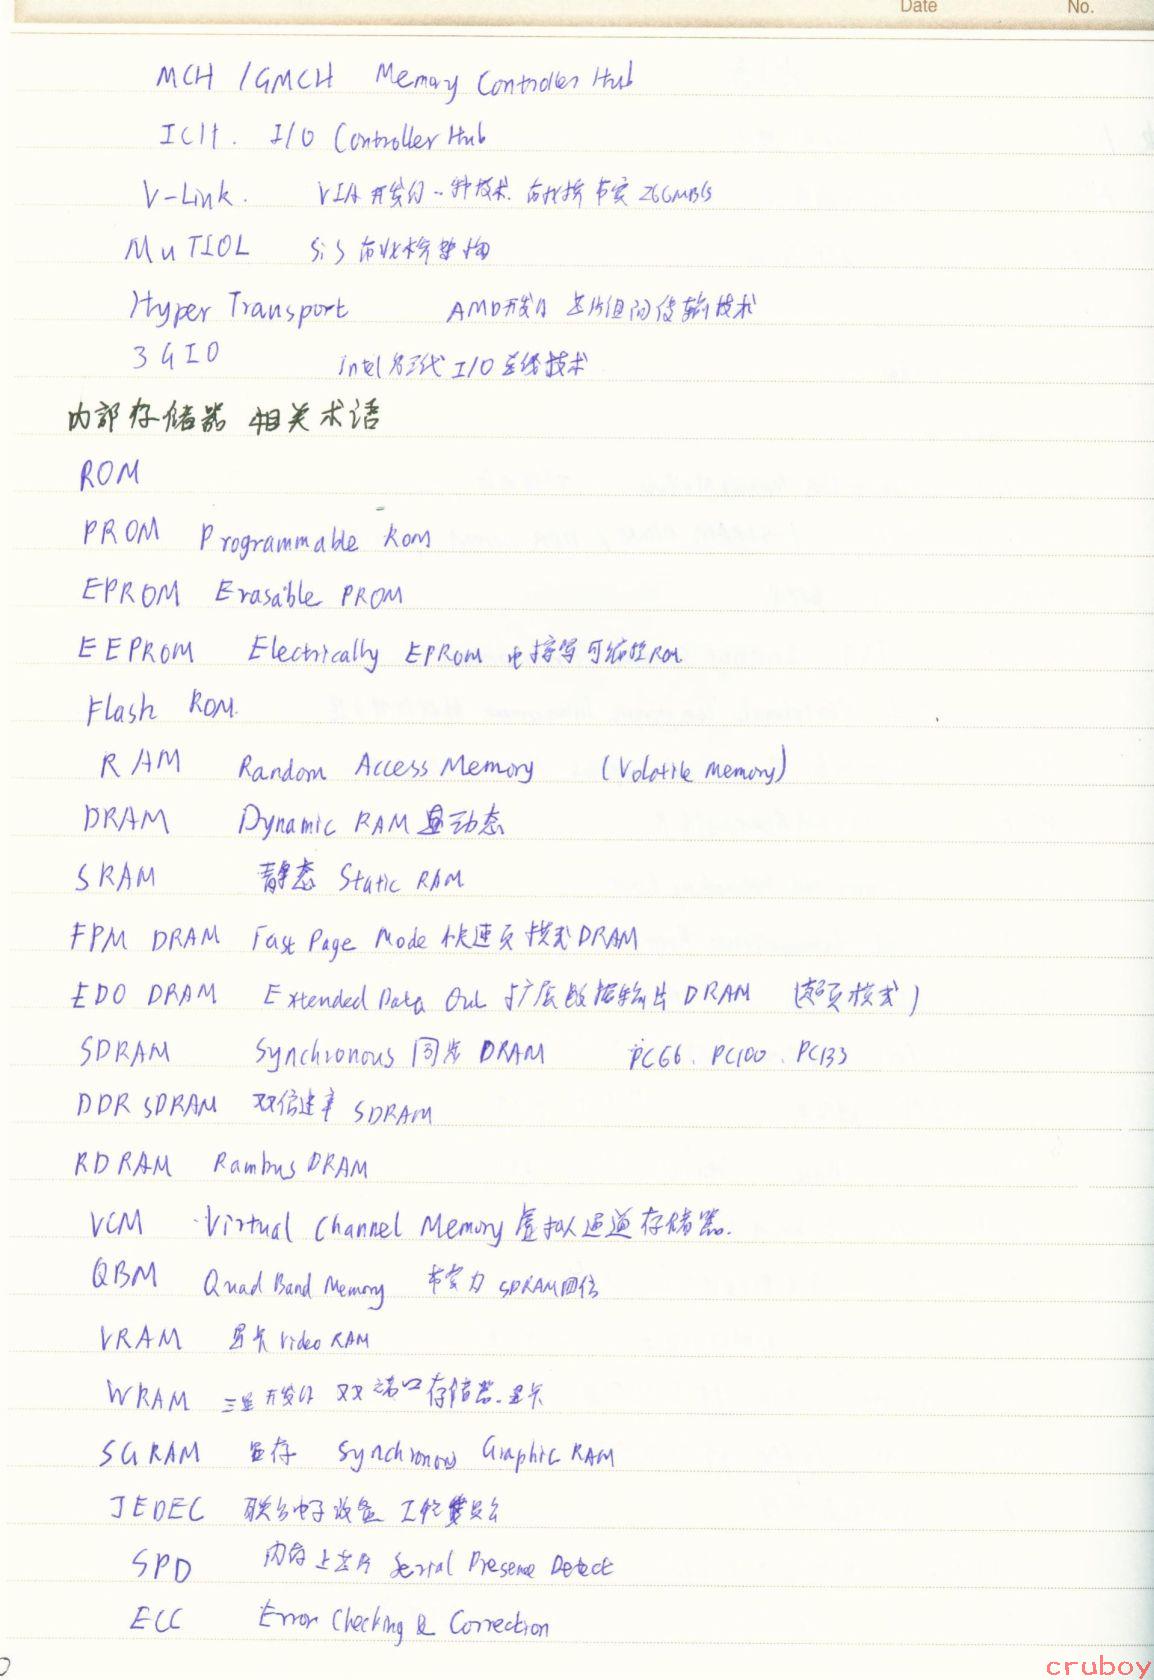 Date No.
MCH /GMCH Memory Controller Hub
ICH. I/O Controller Hub
V-Link. VIA开发的一种技术. 南北桥带宽266MB/s
MuTIOL SiS 南北桥架构
Hyper Transport AMD开发的 芯片组间传输技术
3GIO intel第三代 I/O 总线技术
内部存储器 相关术语
ROM
PROM Programmable Rom
EPROM Erasable PROM
EEPROM Electrically EPROM 电擦写可编程ROM
Flash ROM.
RAM Random Access Memory (Volatile Memory)
DRAM Dynamic RAM 动态
SRAM 静态 Static RAM
FPM DRAM Fast Page Mode 快速页模式DRAM
EDO DRAM Extended Data Out 扩展数据输出DRAM (超页模式)
SDRAM Synchronous 同步 DRAM PC66. PC100. PC133
DDR SDRAM 双倍速率 SDRAM
RDRAM Rambus DRAM
VCM Virtual Channel Memory 虚拟通道存储器.
QBM Quad Band Memory 带宽为 SDRAM四倍
VRAM 显卡 Video RAM
WRAM 三星开发的 双端口存储器.显卡
SGRAM 显存 Synchronous Graphic RAM
JEDEC 联合电子设备 工程委员会
SPD 内存上芯片 Serial Presence Detect
ECC Error Checking & Correction
cruboy